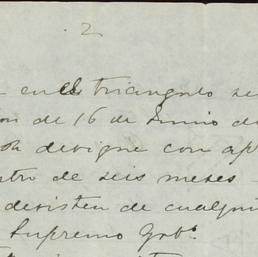 2.
en el triangulo se
on de 16 de Junio de
designe con ap
tro de seis meses
desisten de cualqui
Supremo Gobº